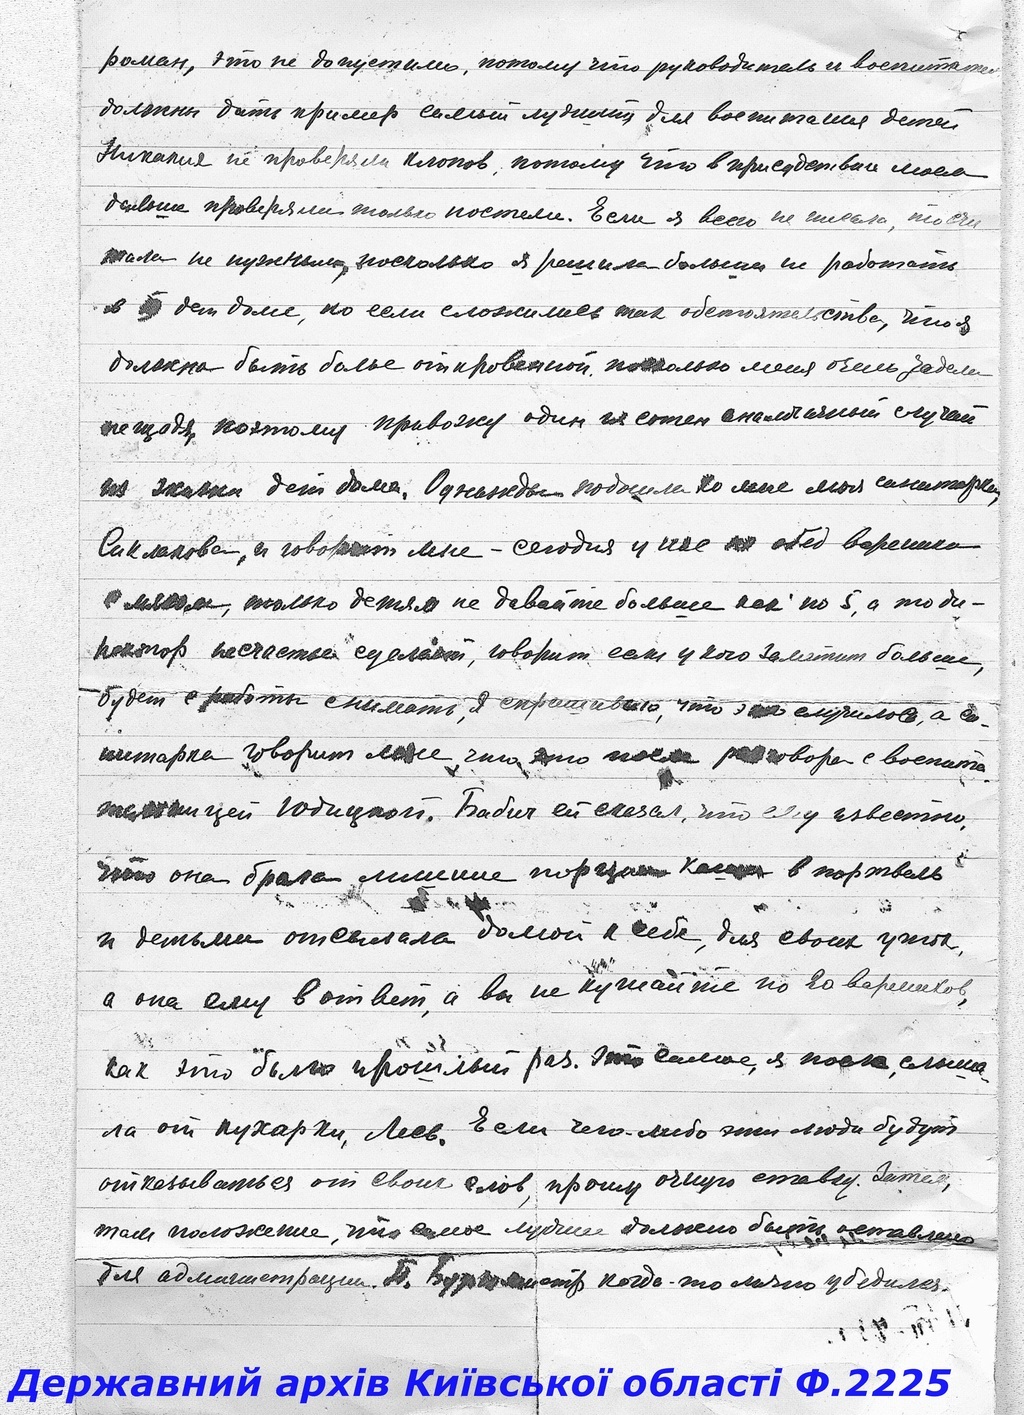 роман, это не допустимо, потому что руководитель и воспитател
должны дать пример самый лучший для воспитания детей
Никакие не проверяли клопов, потому что в присудствии моем
дальше проверяли только постели. Если я всего не писала, то счи
тала не нужным, поскольку я решила больше не работать
в дет доме, но если сложились так обстоятельства, что я
должна быть более откровенной, поскольку меня очень задели
не щадя, поэтому привожу один из сотен аналогичный случай
из жизни дет дома. Однажды подошла ко мне моя санитарка,
Саклакова, и говорит мне - сегодня у нас на обед вареники
с мясом, только детям не давайте больше как по 5, а то ди-
ректор несчастье сделает, говорит если у кого заметит больше,
будет с работы снимать, я спрашиваю, что это случилось, а са-
нитарка говорит мне, что это после разговора с воспита
тельницей Юдицкой. Бабич ей сказал, что ему известно,
что она брала лишние порции каши в портвель
и детьми отсылала домой к себе, для своих уток,
а она ему в ответ, а вы не кушайте по 20 вареников,
как это было прошлый раз. Это самое, я после, слыша-
ла от кухарки, Лесь. Если чего-либо эти люди будут
отказываться от своих слов, прошу очную ставку. Затем,
там положение, что самое лучшее должно быть оставлено
для администрации. П. Бургомистр когда-то лично убедился.
Державний архів Київської області Ф.2225